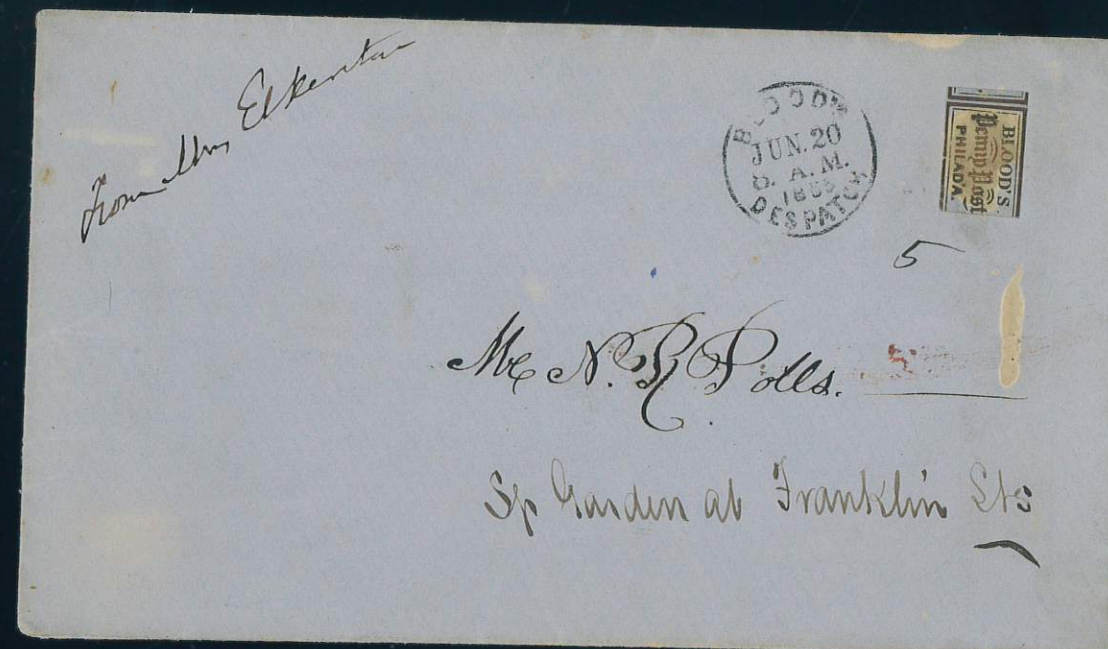 From Mrs Elkenton
BLOOD'S
JUN. 20
A.M.
DESPATCH
BLOOD'S
Penny Post
PHILAD'A.
5
Mr N. R. Potts.
Sp Garden at Franklin Sts